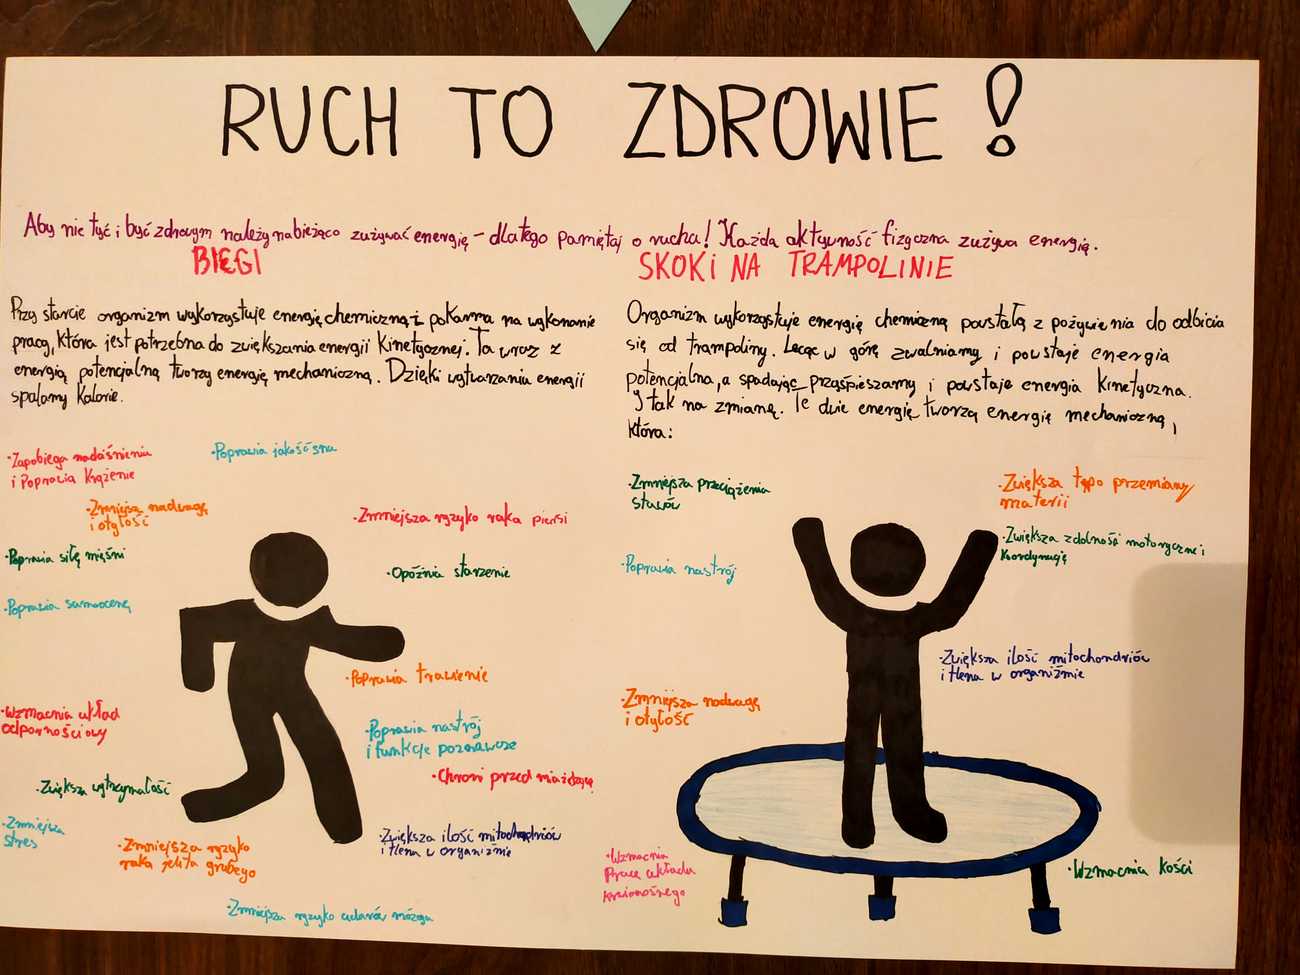 RUCH TO ZDROWIE!
Aby nie tyć i być zdrowym należy na bieżąco zużywać energię – dlatego pamiętaj o ruchu! Każda aktywność fizyczna zużywa energię.
BIEGI
Przy starcie organizm wykorzystuje energię chemiczną z pokarma na wykonanie
pracy, która jest potrzebna do zwiększania energii kinetycznej. Ta wraz z
energią potencjalną tworzy energię mechaniczną. Dzięki wytwarzaniu energii
spalamy kalorie.
·Zapobiega nadciśnieniu
i Poprawia krążenie
·Poprawia jakość snu
·Zmniejsza nadwagę
i otyłość
·Zmniejsza ryzyko raka piersi
·Poprawia siłę mięśni
·Opóźnia starzenie
·Poprawia samoocenę
·Poprawia trawienie
·Wzmacnia układ
odpornościowy
·Poprawia nastrój
i funkcje poznawcze
·Chroni przed miażdżycą
·Zwiększa wytrzymałość
·Zmniejsza
stres
·Zmniejsza ryzyko
raka jelita grubego
·Zwiększa ilość mitochondriów
i tlena w organiźmie
·Zmniejsza ryzyko udarów mózgu
SKOKI NA TRAMPOLINIE
Organizm wykorzystuje energię chemiczną powstałą z pożywienia do odbicia
się od trampoliny. Lecąc w górę zwalniamy i powstaje energia
potencjalna, a spadając przyśpieszamy i powstaje energia kinetyczna.
I tak na zmianę. Te dwie energię tworzą energię mechaniczną,
która:
·Zmniejsza przeciążenia
stawów
·Zwiększa typo przemiany
materii
·Zwiększa zdolność motoryczne i
koordynację
·Poprawia nastrój
·Zwiększa ilość mitochondriów
i tlena w organiźmie
·Zmniejsza nadwagę
i otyłość
·Wzmacnia
Pracę układu
krwionośnego
·Wzmacnia kości